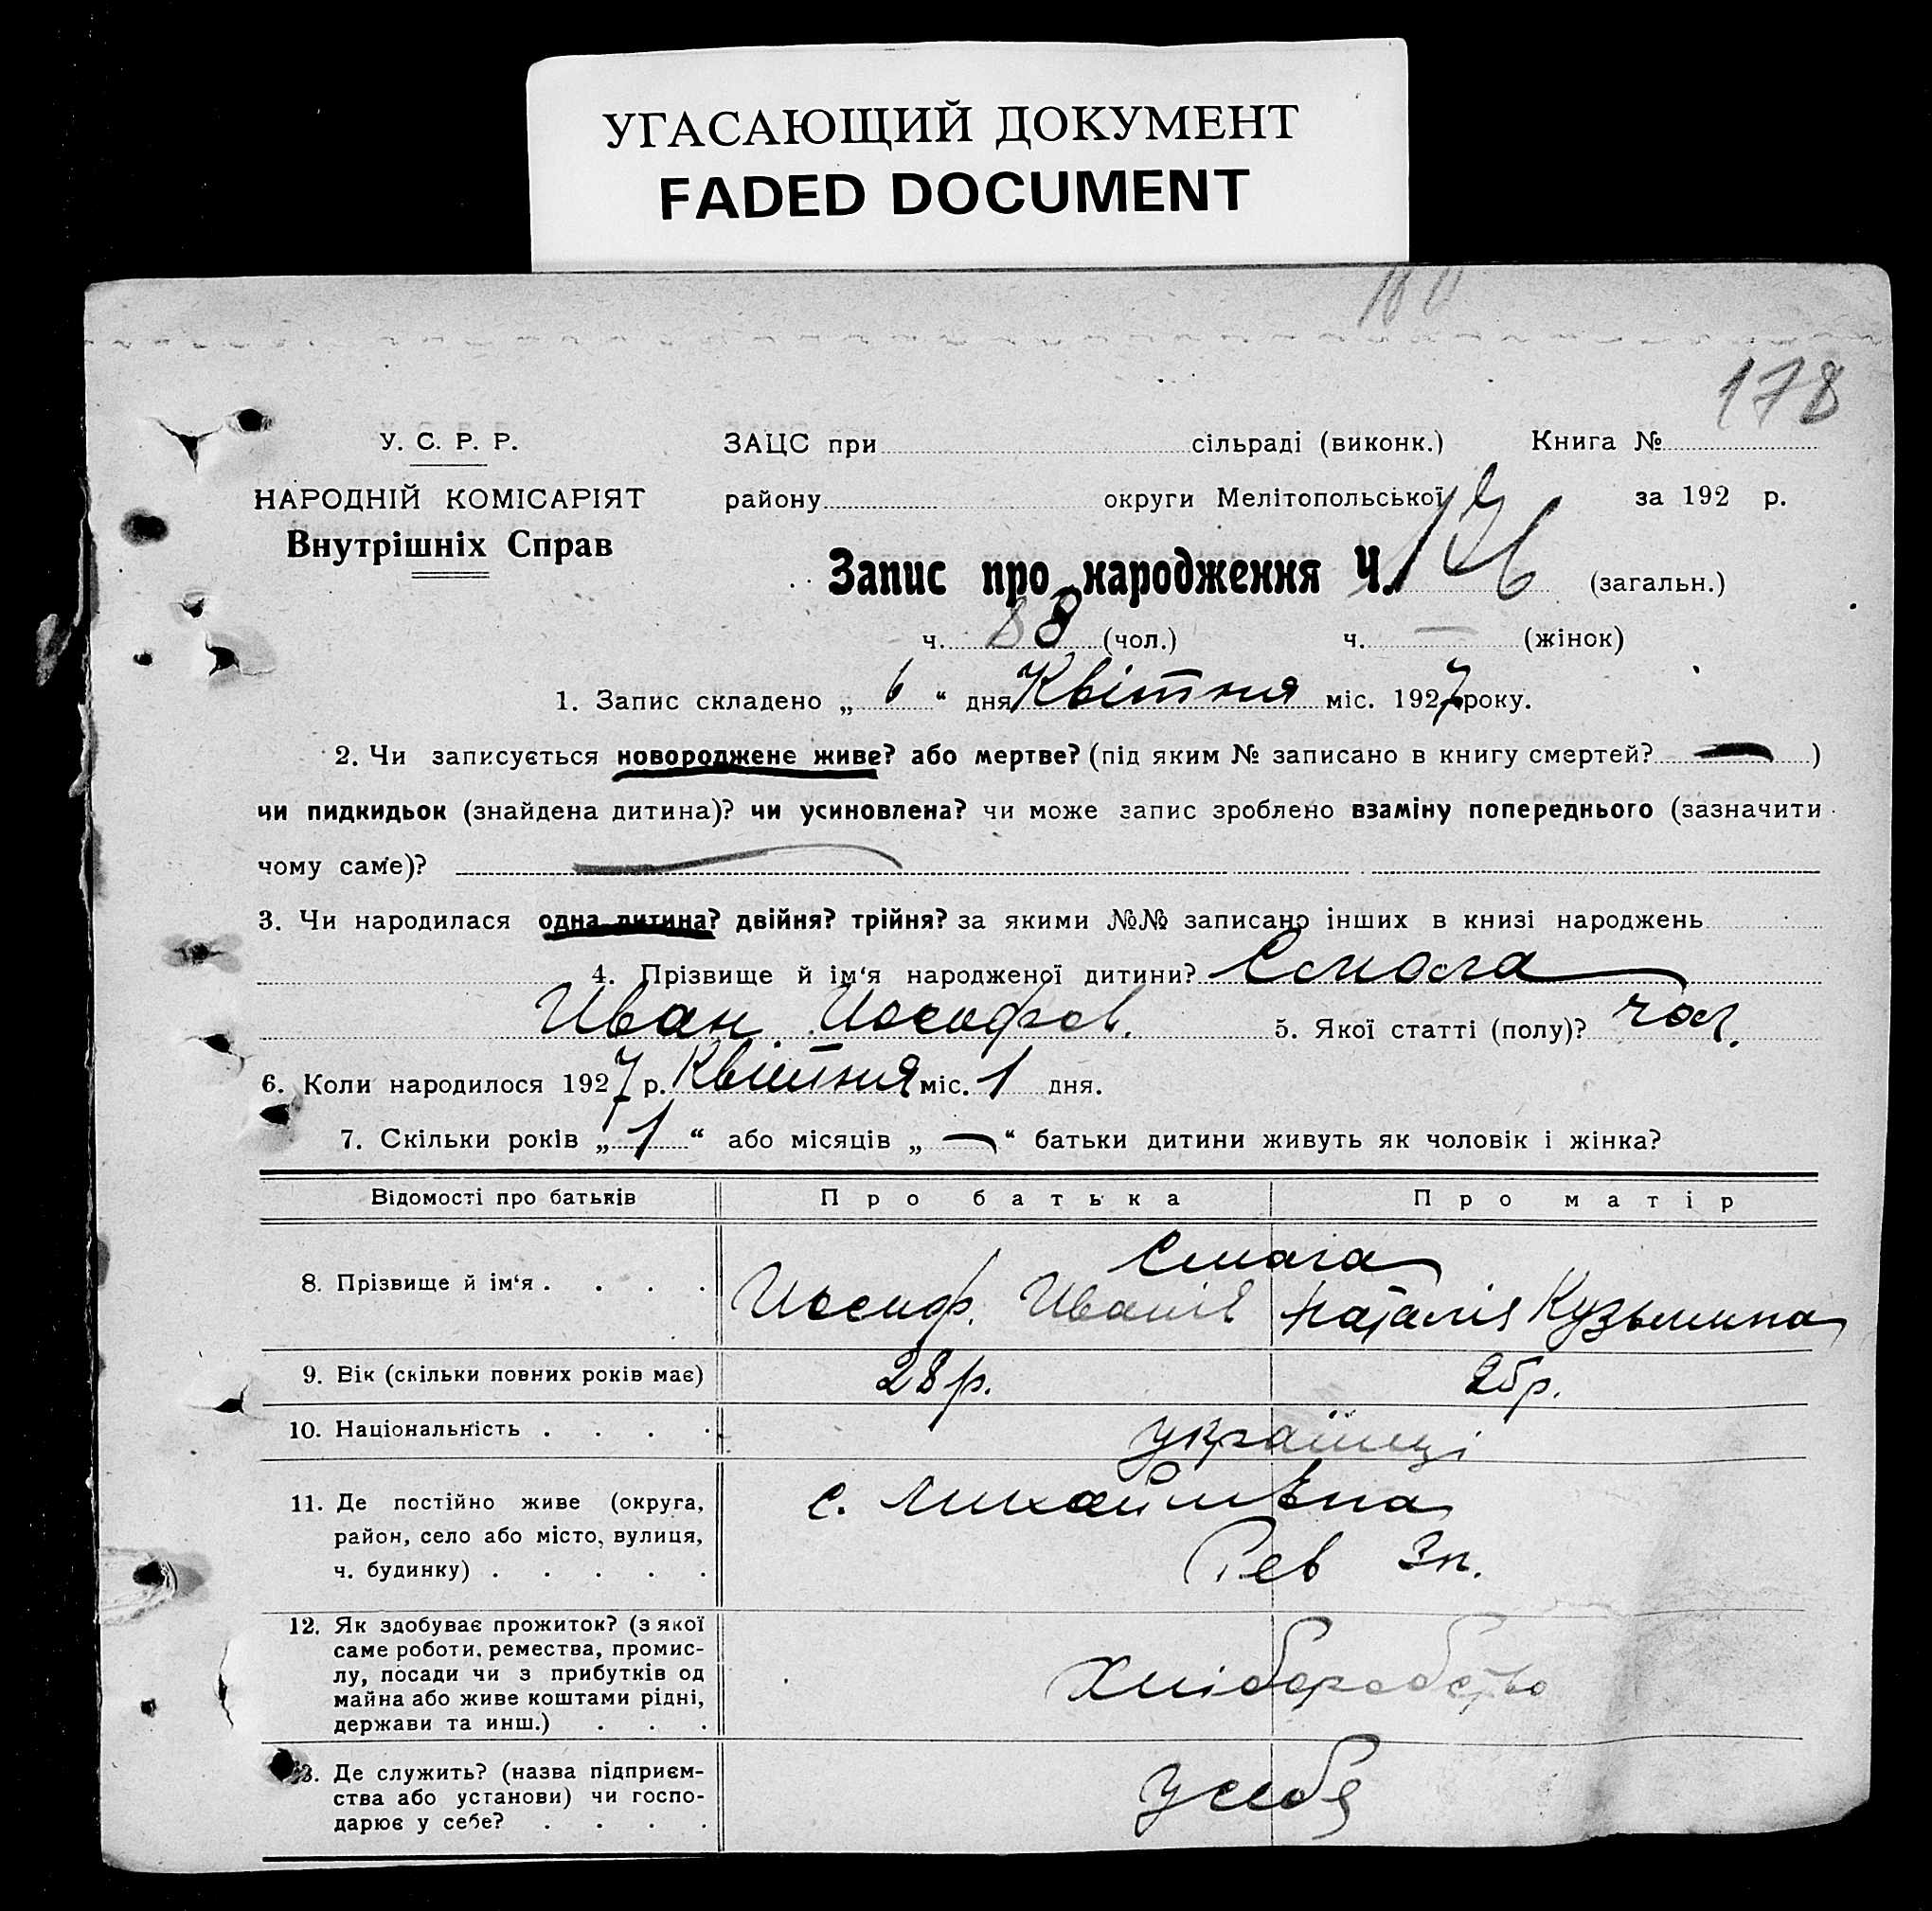 УГАСАЮЩИЙ ДОКУМЕНТ
FADED DOCUMENT
178
У. С. Р. Р.
НАРОДНІЙ КОМІСАРІЯТ
Внутрішніх Справ
ЗАЦС при сільраді (виконк.) Книга №
району округи Мелітопольської за 192 р.
Запис про народження Ч. (загальн.)
ч. 88 (чол.) ч. — (жінок)
1. Запис складено „ 6 “ дня Квітня міс. 1927 року.
2. Чи записується новороджене живе? або мертве? (під яким № записано в книгу смертей? — )
чи пидкидьок (знайдена дитина)? чи усиновлена? чи може запис зроблено взаміну попереднього (зазначити
чому саме)?
3. Чи народилася одна дитина? двійня? трійня? за якими №№ записано інших в книзі народжень
4. Прізвище й ім‘я народженої дитини?
Иван Иосифов. 5. Якої статті (полу)? чол.
6. Коли народилося 1927 р. Квітня міс. 1 дня.
7. Скільки років „ 1 “ або місяців „ — “ батьки дитини живуть як чоловік і жінка?
Відомості про батьків Про батька Про матір
8. Прізвище й ім‘я . . . .
Иосиф. Иванів Наталія Кузьмина
9. Вік (скільки повних років має) 28 р. 25 р.
10. Національність . . . . українці
11. Де постійно живе (округа,
район, село або місто, вулиця,
ч. будинку) . . . . .
с. Михайлівка
Рев
12. Як здобуває прожиток? (з якої
саме роботи, ремества, промис-
лу, посади чи з прибутків од
майна або живе коштами рідні,
держави та инш.) . . .
хліборобство
13. Де служить? (назва підприєм-
ства або установи) чи госпо-
дарює у себе? . . . .
у себя